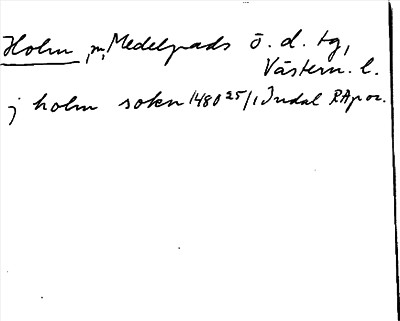 Holm, sn, Medelpads ö. d. tg,
Västern. l.
j holm sokn 1480 25/1 Indal RAp or.